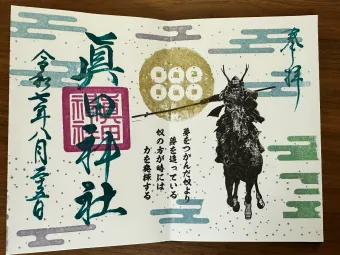 奉拝
夢をつかんだ奴より
夢を追っている
奴の方が時には
力を発揮する
眞田神社
令和六年八月二十五日